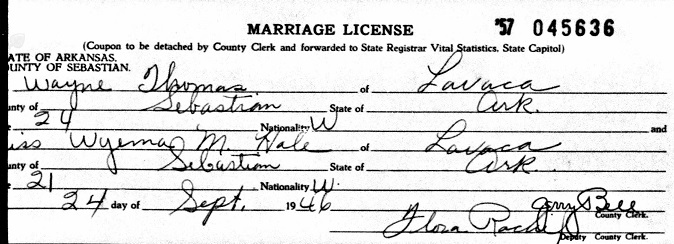 MARRIAGE LICENSE '57 045636
(Coupon to be detached by County Clerk and forwarded to State Registrar Vital Statistics, State Capitol)
ATE OF ARKANSAS.
UNTY OF SEBASTIAN.
Wayne Thomas of Lavaca
nty of Sebastian State of Ark.
24 Nationality W and
iss Wyema M. Hale of Lavaca
unty of Sebastian State of Ark.
21 Nationality W.
24 day of Sept. 1946 Jerry Bell
County Clerk.
Flora
Deputy County Clerk.